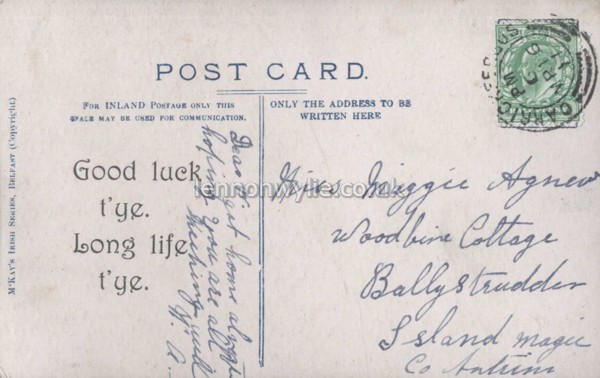 POST CARD.
FOR INLAND POSTAGE ONLY THIS
SPACE MAY BE USED FOR COMMUNICATION.
ONLY THE ADDRESS TO BE
WRITTEN HERE
Good luck
t'ye.
Long life
t'ye.
Dear
get home alright
hoping you are all
keeping well
A.
Miss Miggie Agnew
Woodbine Cottage
Ballystrudder
Island magee
Co Antrim
M'KAY'S IRISH SERIES, BELFAST (Copyright)
lennonwylie.co.uk